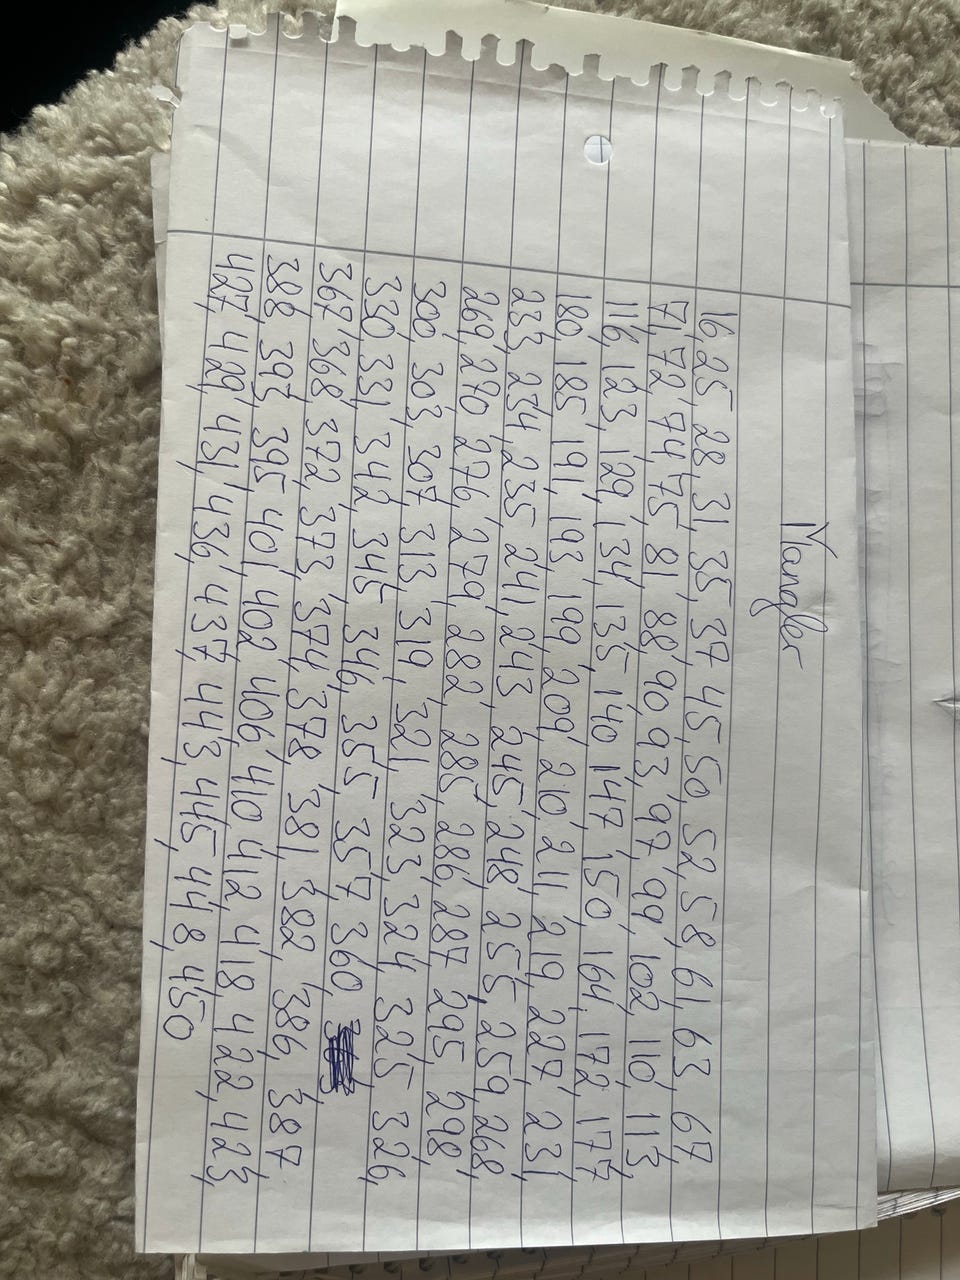 Mangler
16, 25, 28, 31, 35, 37, 45, 50, 52, 58, 61, 63, 67
71, 72, 74, 75, 81, 88, 90, 93, 97, 99, 102, 110, 113,
116, 123, 129, 134, 135, 140, 147, 150, 164, 172, 177,
180, 185, 191, 193, 199, 209, 210, 211, 219, 227, 231,
233, 234, 235, 241, 243, 245, 248, 255, 259, 268,
269, 270, 276, 279, 282, 285, 286, 287, 295, 298,
300, 303, 307, 313, 319, 321, 323, 324, 325, 326,
330, 331, 342, 345, 346, 355, 357, 360,
367, 368, 372, 373, 374, 378, 381, 382, 386, 387
388, 393, 395, 401, 402, 406, 410, 412, 418, 422, 423,
427, 429, 431, 436, 437, 443, 445, 448, 450